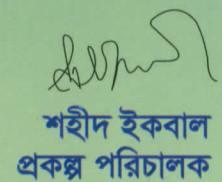 শহীদ ইকবাল
প্রকল্প পরিচালক